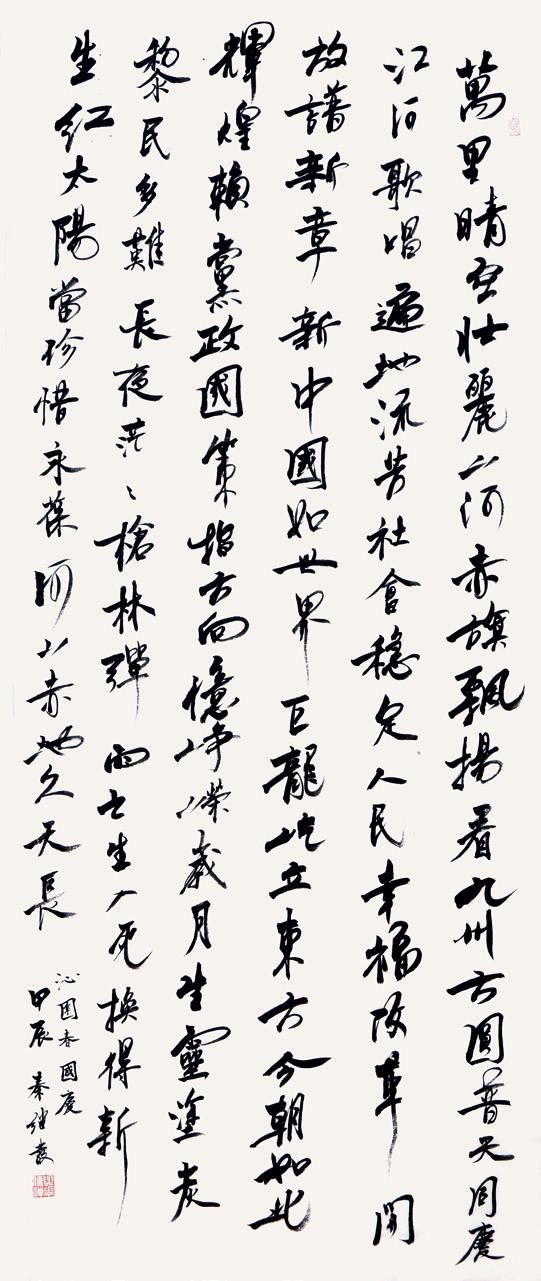 萬里晴空壯麗山河赤旗飄揚看九州方圓普天同慶
江河歌唱遍地流芳社會穩定人民幸福改革開
放譜新章新中國如世界巨龍屹立東方今朝如此
輝煌賴黨政國策指方向憶崢嶸歲月生靈塗炭
黎民多難長夜茫〻槍林彈雨出生入死換得新
生紅太陽當珍惜永葆河山赤地久天長
沁園春國慶
甲辰秦